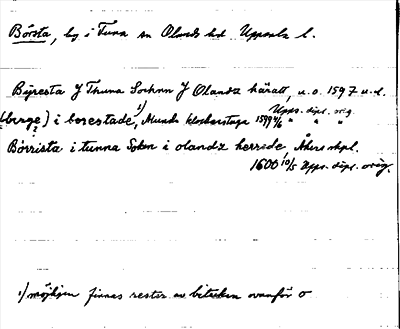 Börsta, by i Tuna sn Olands hd Uppsala l.
Böresta J Thuna Sochnn J Olandz häratt, u.o. 1597 u.d.
Upps. dipl. orig.
(berge) i berestade, 1) Munda klockarstuga 1599 4/6 " " "
?
Börrista i tunna Soken i olandz herrede, Åkers skpl.
1600 10/5 Upps. dipl. orig.
1) möjligen finnas rester av bitecken ovanför o